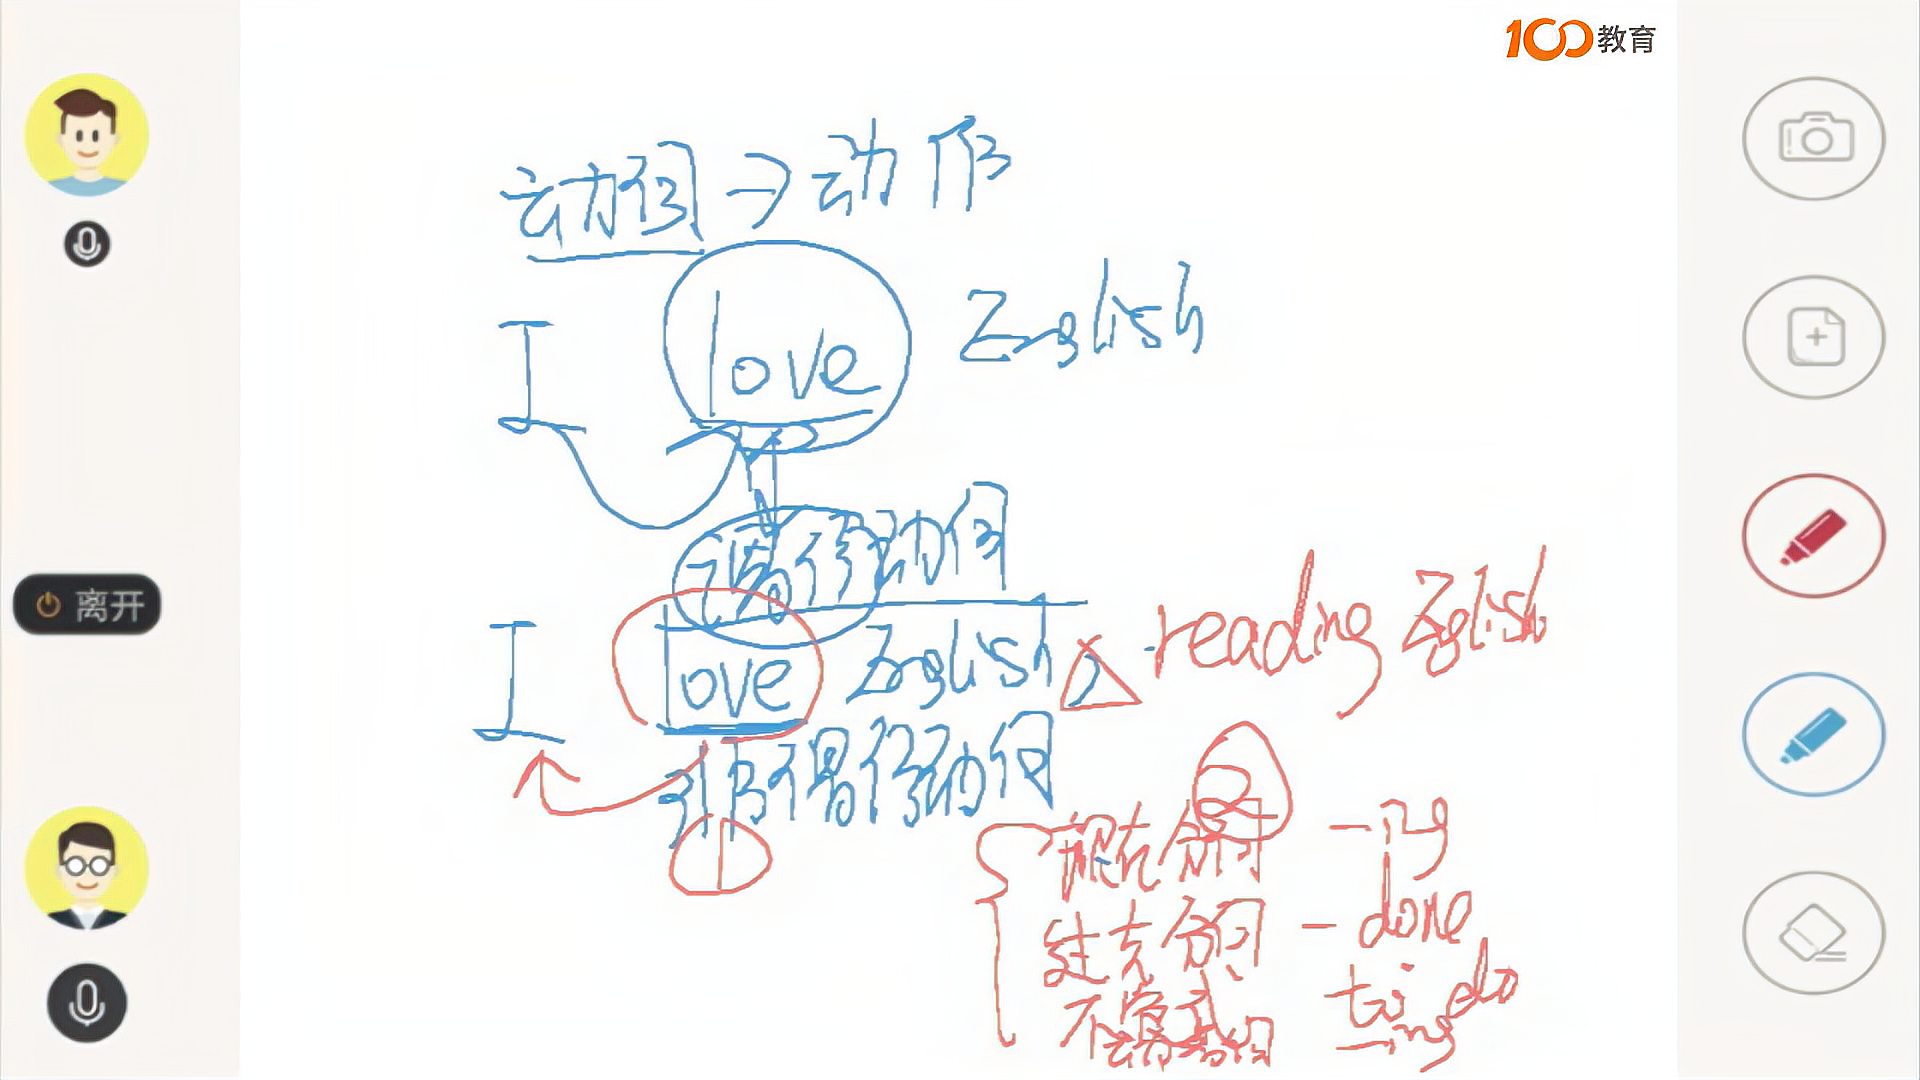 100教育
动词→动作
I love English
谓语动词
I love English, reading English
非谓语动词
离开
现在分词 -ing
过去分词 - done
不定式 to do
动名词 -ing